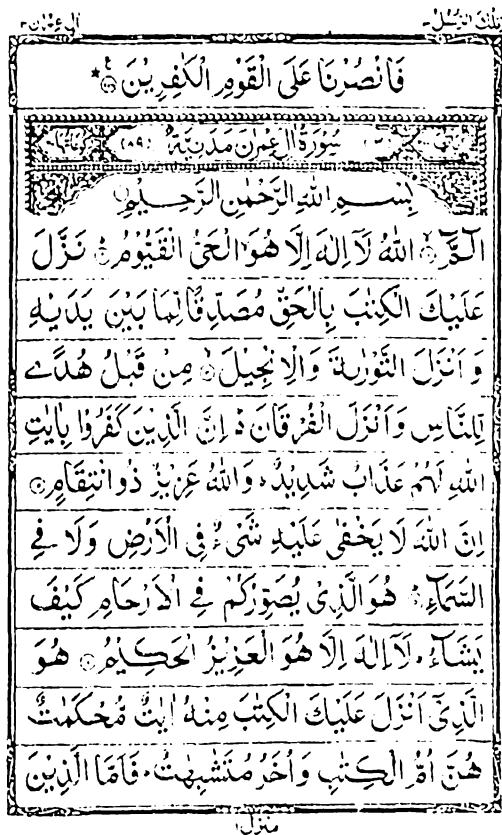 تلك الرسل ٣ ال عمران ٣
فَانْصُرْنَا عَلَى الْقَوْمِ الْكٰفِرِيْنَ
سُوْرَةُ اٰلِ عِمْرٰنَ مَدَنِيَّةٌ (٨٩)
بِسْمِ اللهِ الرَّحْمٰنِ الرَّحِيْمِ
الٓمّٓ اللهُ لَآ اِلٰهَ اِلَّا هُوَ الْحَيُّ الْقَيُّوْمُ نَزَّلَ
عَلَيْكَ الْكِتٰبَ بِالْحَقِّ مُصَدِّقًا لِّمَا بَيْنَ يَدَيْهِ
وَاَنْزَلَ التَّوْرٰىةَ وَالْاِنْجِيْلَ مِنْ قَبْلُ هُدًى
لِّلنَّاسِ وَاَنْزَلَ الْفُرْقَانَ اِنَّ الَّذِيْنَ كَفَرُوْا بِاٰيٰتِ
اللهِ لَهُمْ عَذَابٌ شَدِيْدٌ وَاللهُ عَزِيْزٌ ذُو انْتِقَامٍ
اِنَّ اللهَ لَا يَخْفٰى عَلَيْهِ شَيْءٌ فِي الْاَرْضِ وَلَا فِي
السَّمَآءِ هُوَ الَّذِيْ يُصَوِّرُكُمْ فِي الْاَرْحَامِ كَيْفَ
يَشَآءُ لَآ اِلٰهَ اِلَّا هُوَ الْعَزِيْزُ الْحَكِيْمُ هُوَ
الَّذِيْٓ اَنْزَلَ عَلَيْكَ الْكِتٰبَ مِنْهُ اٰيٰتٌ مُّحْكَمٰتٌ
هُنَّ اُمُّ الْكِتٰبِ وَاُخَرُ مُتَشٰبِهٰتٌ فَاَمَّا الَّذِيْنَ
منزل ١